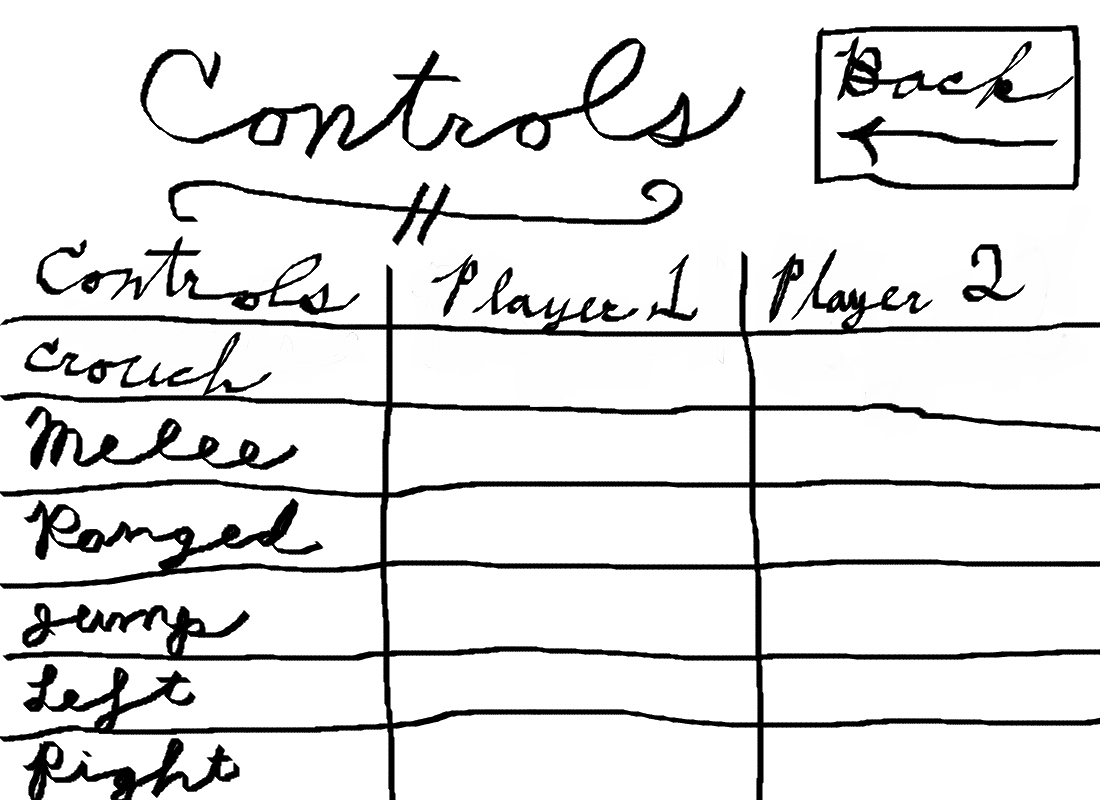 Controls
Back
Controls Player 1 Player 2
crouch
Melee
Ranged
Jump
Left
Right